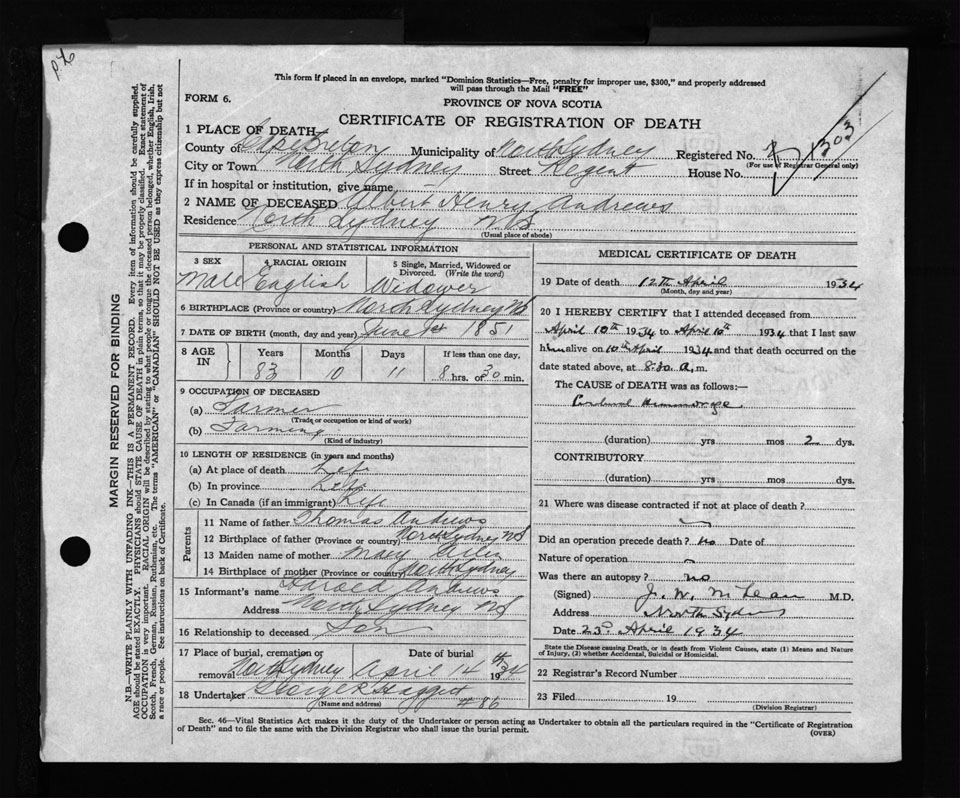 This form if placed in an envelope, marked "Dominion Statistics—Free, penalty for improper use, $300," and properly addressed
will pass through the Mail "FREE"
FORM 6.
PROVINCE OF NOVA SCOTIA
CERTIFICATE OF REGISTRATION OF DEATH
1 PLACE OF DEATH
County of Cape Breton Municipality of North Sydney Registered No. 1303
(For use of Registrar General only)
City or Town North Sydney Street Regent House No.
If in hospital or institution, give name
2 NAME OF DECEASED Albert Henry Andrews
Residence North Sydney N.S.
(Usual place of abode)
PERSONAL AND STATISTICAL INFORMATION
3 SEX 4 RACIAL ORIGIN 5 Single, Married, Widowed or Divorced. (Write the word)
Male English Widower
6 BIRTHPLACE (Province or country) North Sydney NS
7 DATE OF BIRTH (month, day and year) June 1st 1851
8 AGE IN Years Months Days If less than one day,
83 10 11 8 hrs. or 30 min.
9 OCCUPATION OF DECEASED
(a) Farmer
(Trade or occupation or kind of work)
(b) Farming
(Kind of industry)
10 LENGTH OF RESIDENCE (in years and months)
(a) At place of death Life
(b) In province Life
(c) In Canada (if an immigrant) Life
Parents
11 Name of father Thomas Andrews
12 Birthplace of father (Province or country) North Sydney NS
13 Maiden name of mother Mary
14 Birthplace of mother (Province or country) North Sydney
15 Informant's name Harold Andrews
Address North Sydney NS
16 Relationship to deceased Son
17 Place of burial, cremation or removal Date of burial
North Sydney April 14th 1934
18 Undertaker George R
(Name and address) #86
MEDICAL CERTIFICATE OF DEATH
19 Date of death 12th April 1934
(Month, day and year)
20 I HEREBY CERTIFY that I attended deceased from
April 10th 1934 to April 10th 1934 that I last saw
him alive on 10th April 1934 and that death occurred on the
date stated above, at 8.30 a.m.
The CAUSE OF DEATH was as follows:—
Cerebral Hemmorage
(duration) yrs mos 2 dys.
CONTRIBUTORY
(duration) yrs mos dys.
21 Where was disease contracted if not at place of death?
Did an operation precede death? no Date of
Nature of operation
Was there an autopsy? no
(Signed) J. W. McLean M.D.
Address North Sydney
Date 23d April 1934
State the Disease causing Death, or in death from Violent Causes, state (1) Means and Nature of Injury, (2) whether Accidental, Suicidal or Homicidal.
22 Registrar's Record Number
23 Filed 19
(Division Registrar)
Sec. 46—Vital Statistics Act makes it the duty of the Undertaker or person acting as Undertaker to obtain all the particulars required in the "Certificate of Registration
of Death" and to file the same with the Division Registrar who shall issue the burial permit.
(OVER)
MARGIN RESERVED FOR BINDING
N.B.—WRITE PLAINLY WITH UNFADING INK—THIS IS A PERMANENT RECORD. Every item of information should be carefully supplied.
AGE should be stated EXACTLY. PHYSICIANS should STATE CAUSE OF DEATH in plain terms, so that it may be properly classified. Exact statement of
OCCUPATION is very important. RACIAL ORIGIN will be described by stating to what people or tongue the deceased person belonged, whether English, Irish,
Scotch, French, German, Russian, Ruthenian, etc. The terms "AMERICAN" or "CANADIAN" SHOULD NOT BE USED as they express citizenship but not
a race or people. See instructions on back of Certificate.